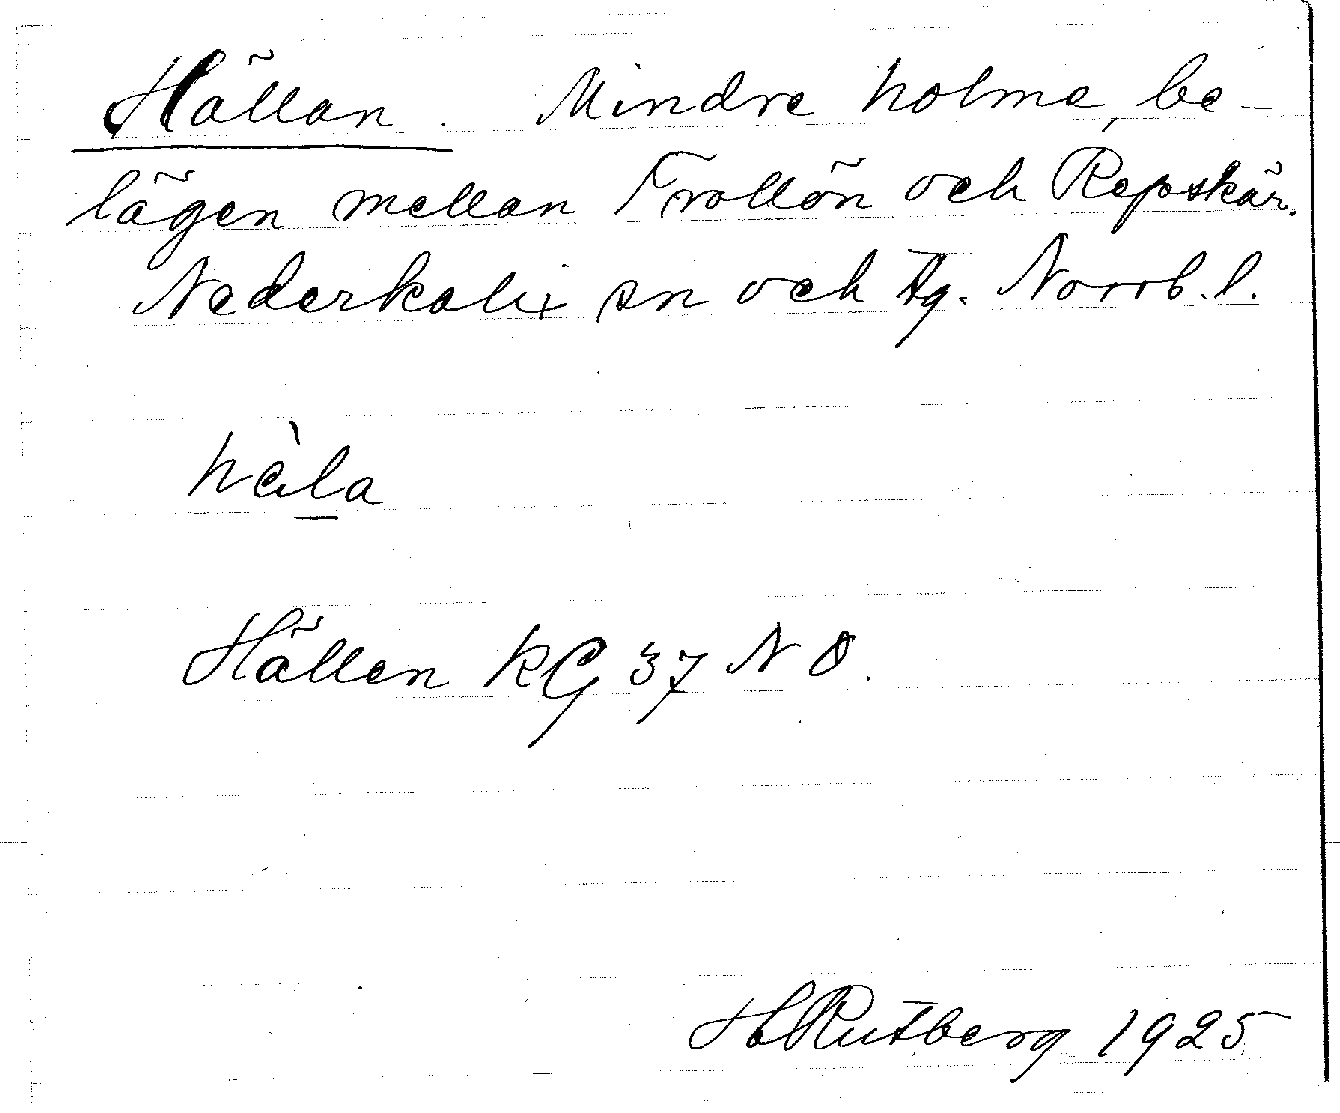 Hällan. Mindre holme, be-
lägen mellan Trollön och Repskär.
Nederkalix sn och tg. Norrb. l.
hàla
Hällen KG 37 N Ö.
H Rutberg 1925